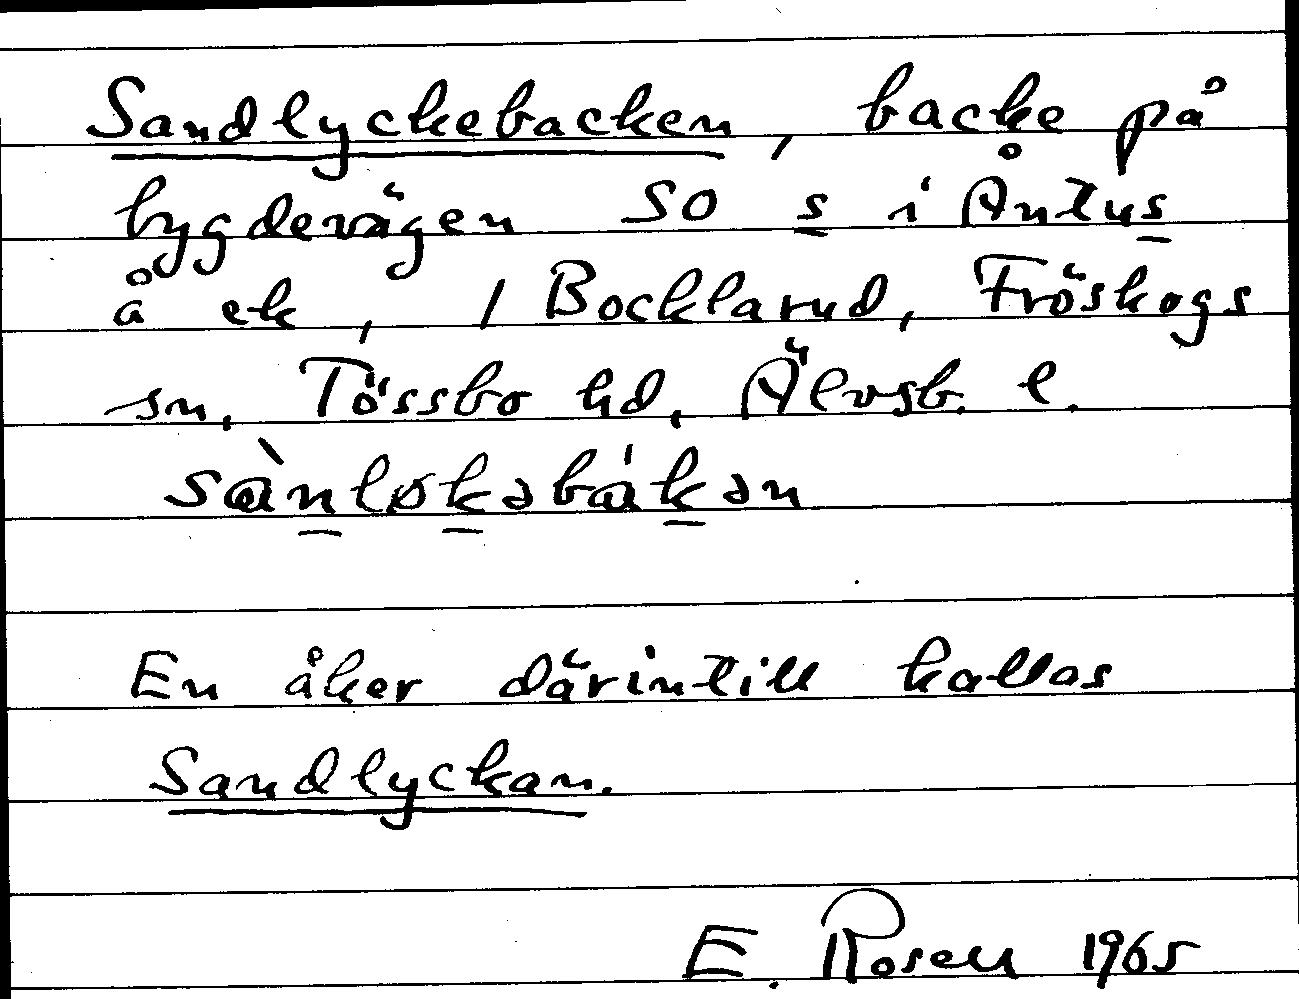 Sandlyckebacken, backe på
bygdevägen SO s i Åntus
å ek, 1 Bocklarud, Fröskogs
sn. Tössbo hd, Älvsb. l.
sànløkəbákən
En åker därintill kallas
Sandlyckan.
E. Rosell 1965